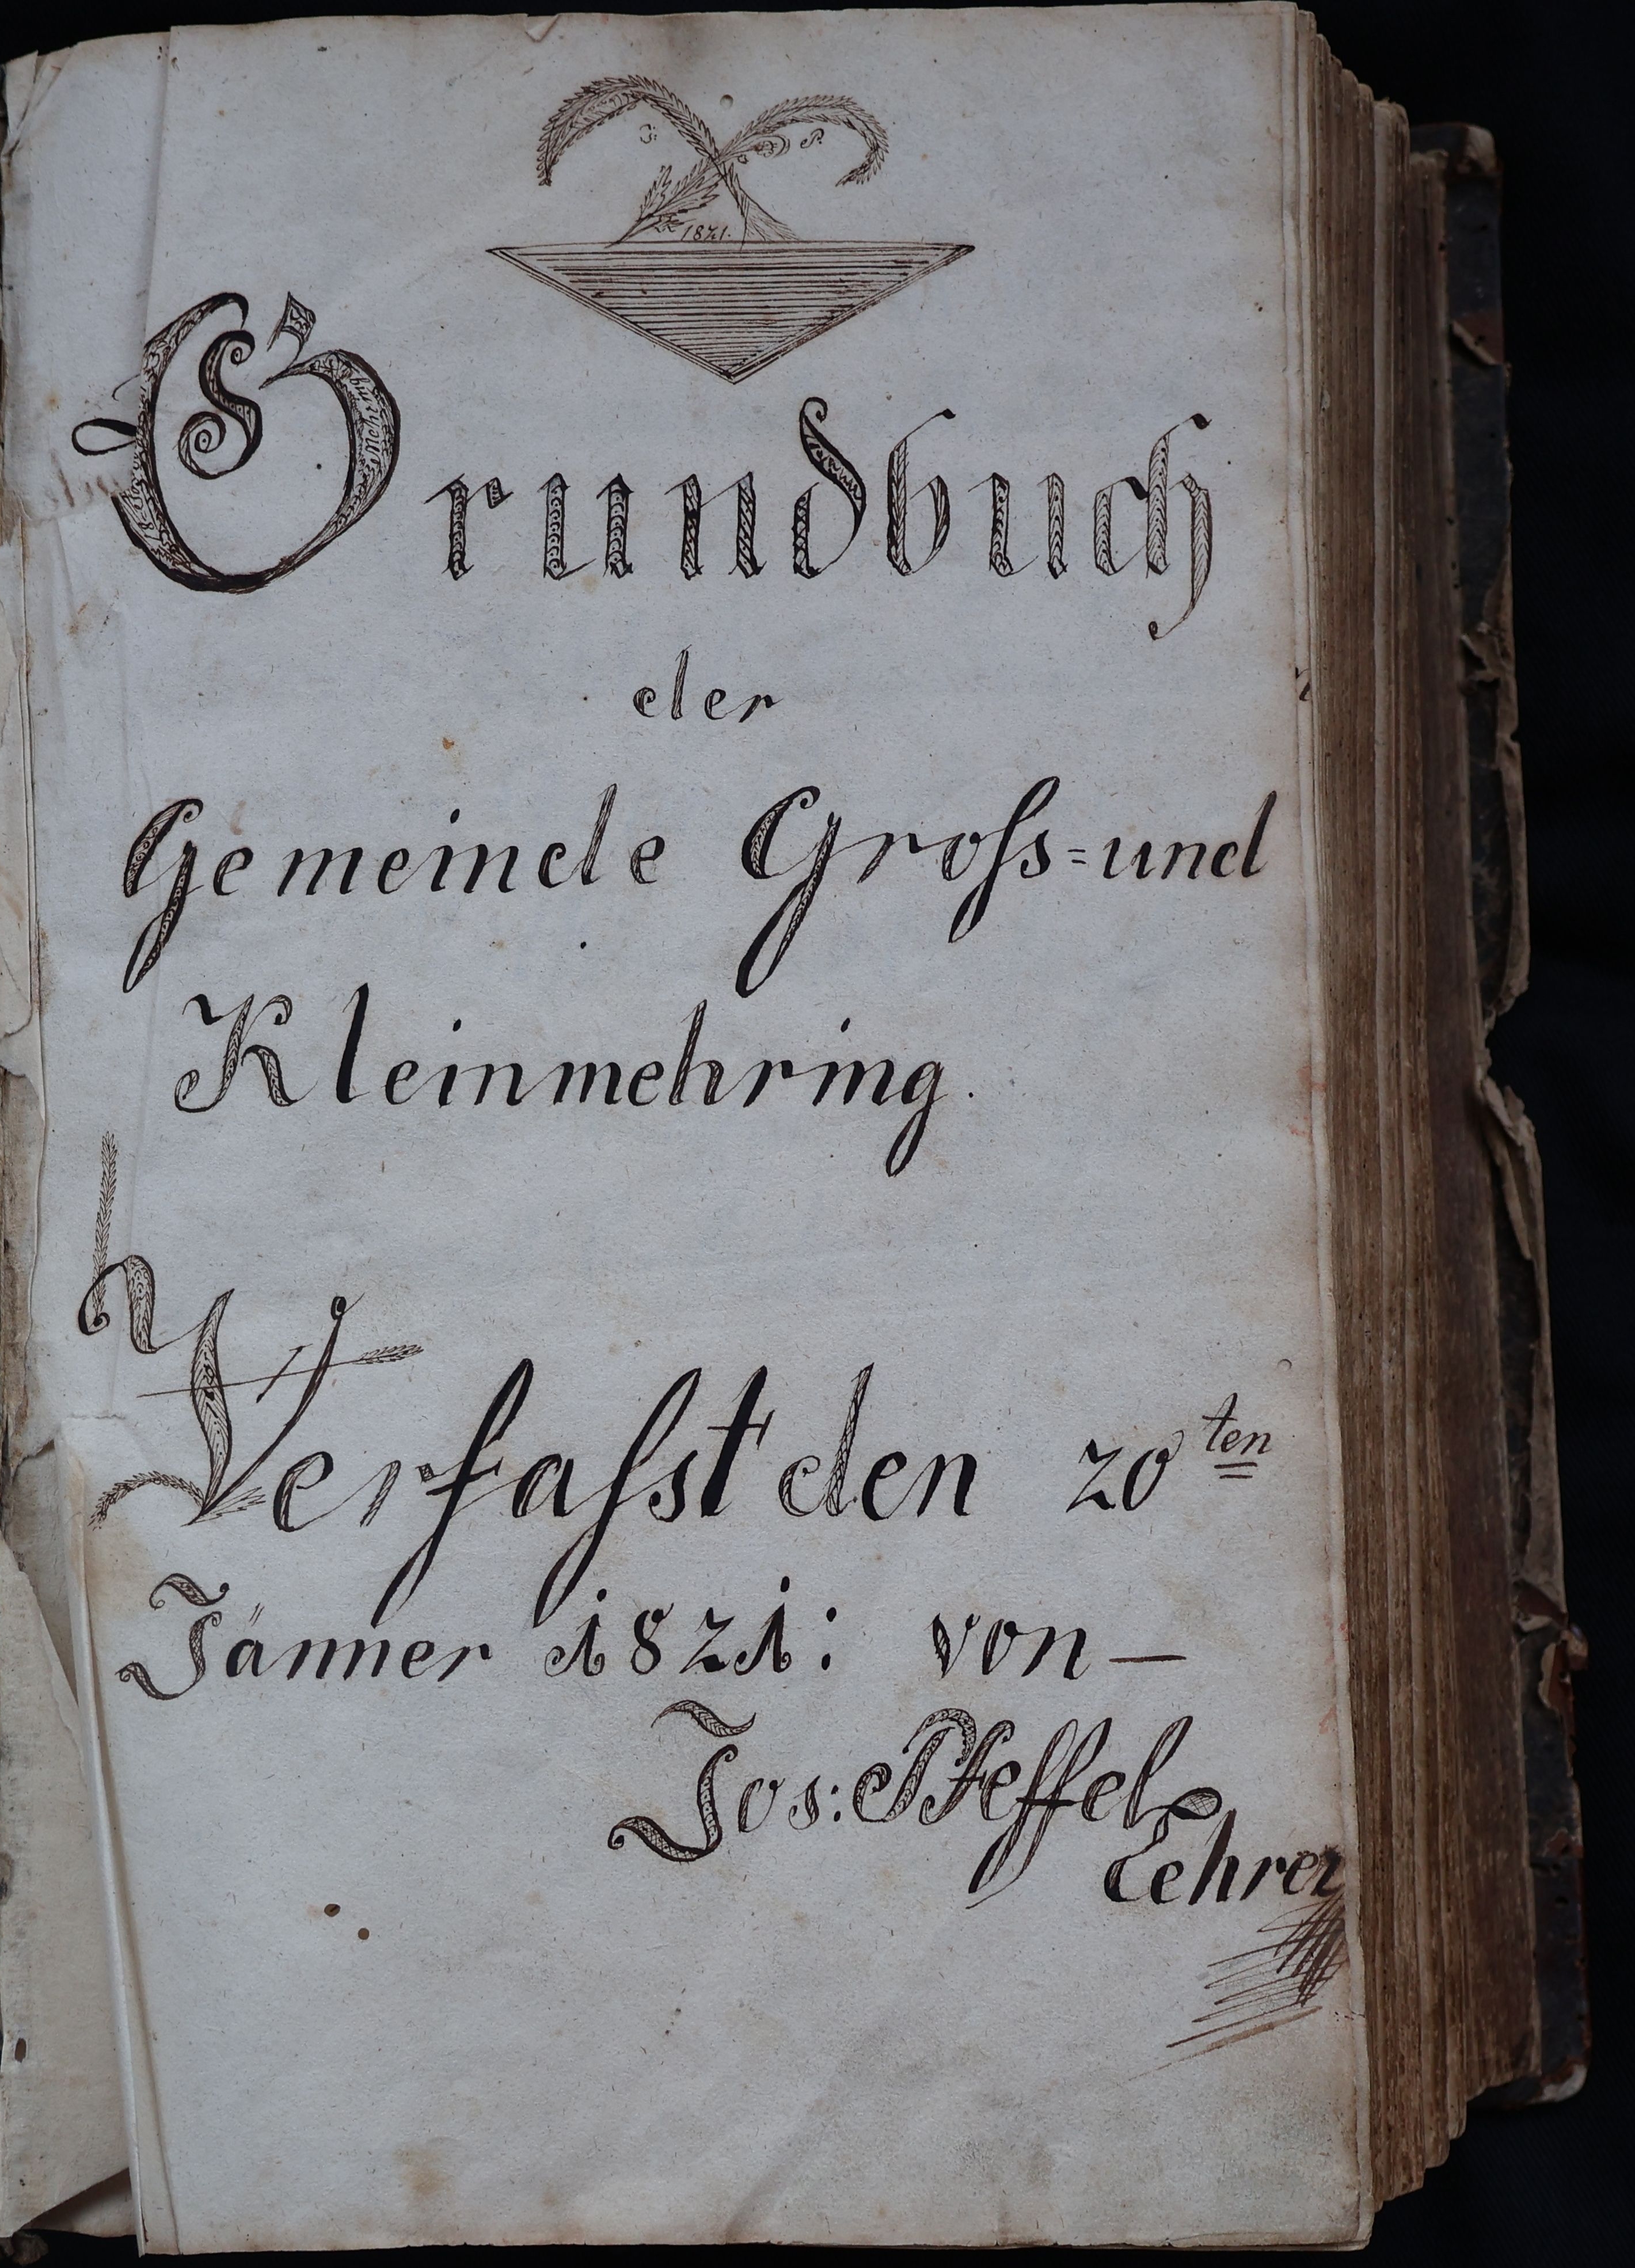 J: P.
1821.
Grundbuch
der
Gemeinde Gross=und
Kleinmehring.
Verfasst den 20ten
Jänner 1821: von—
Jos: Pfeffel
Lehrer